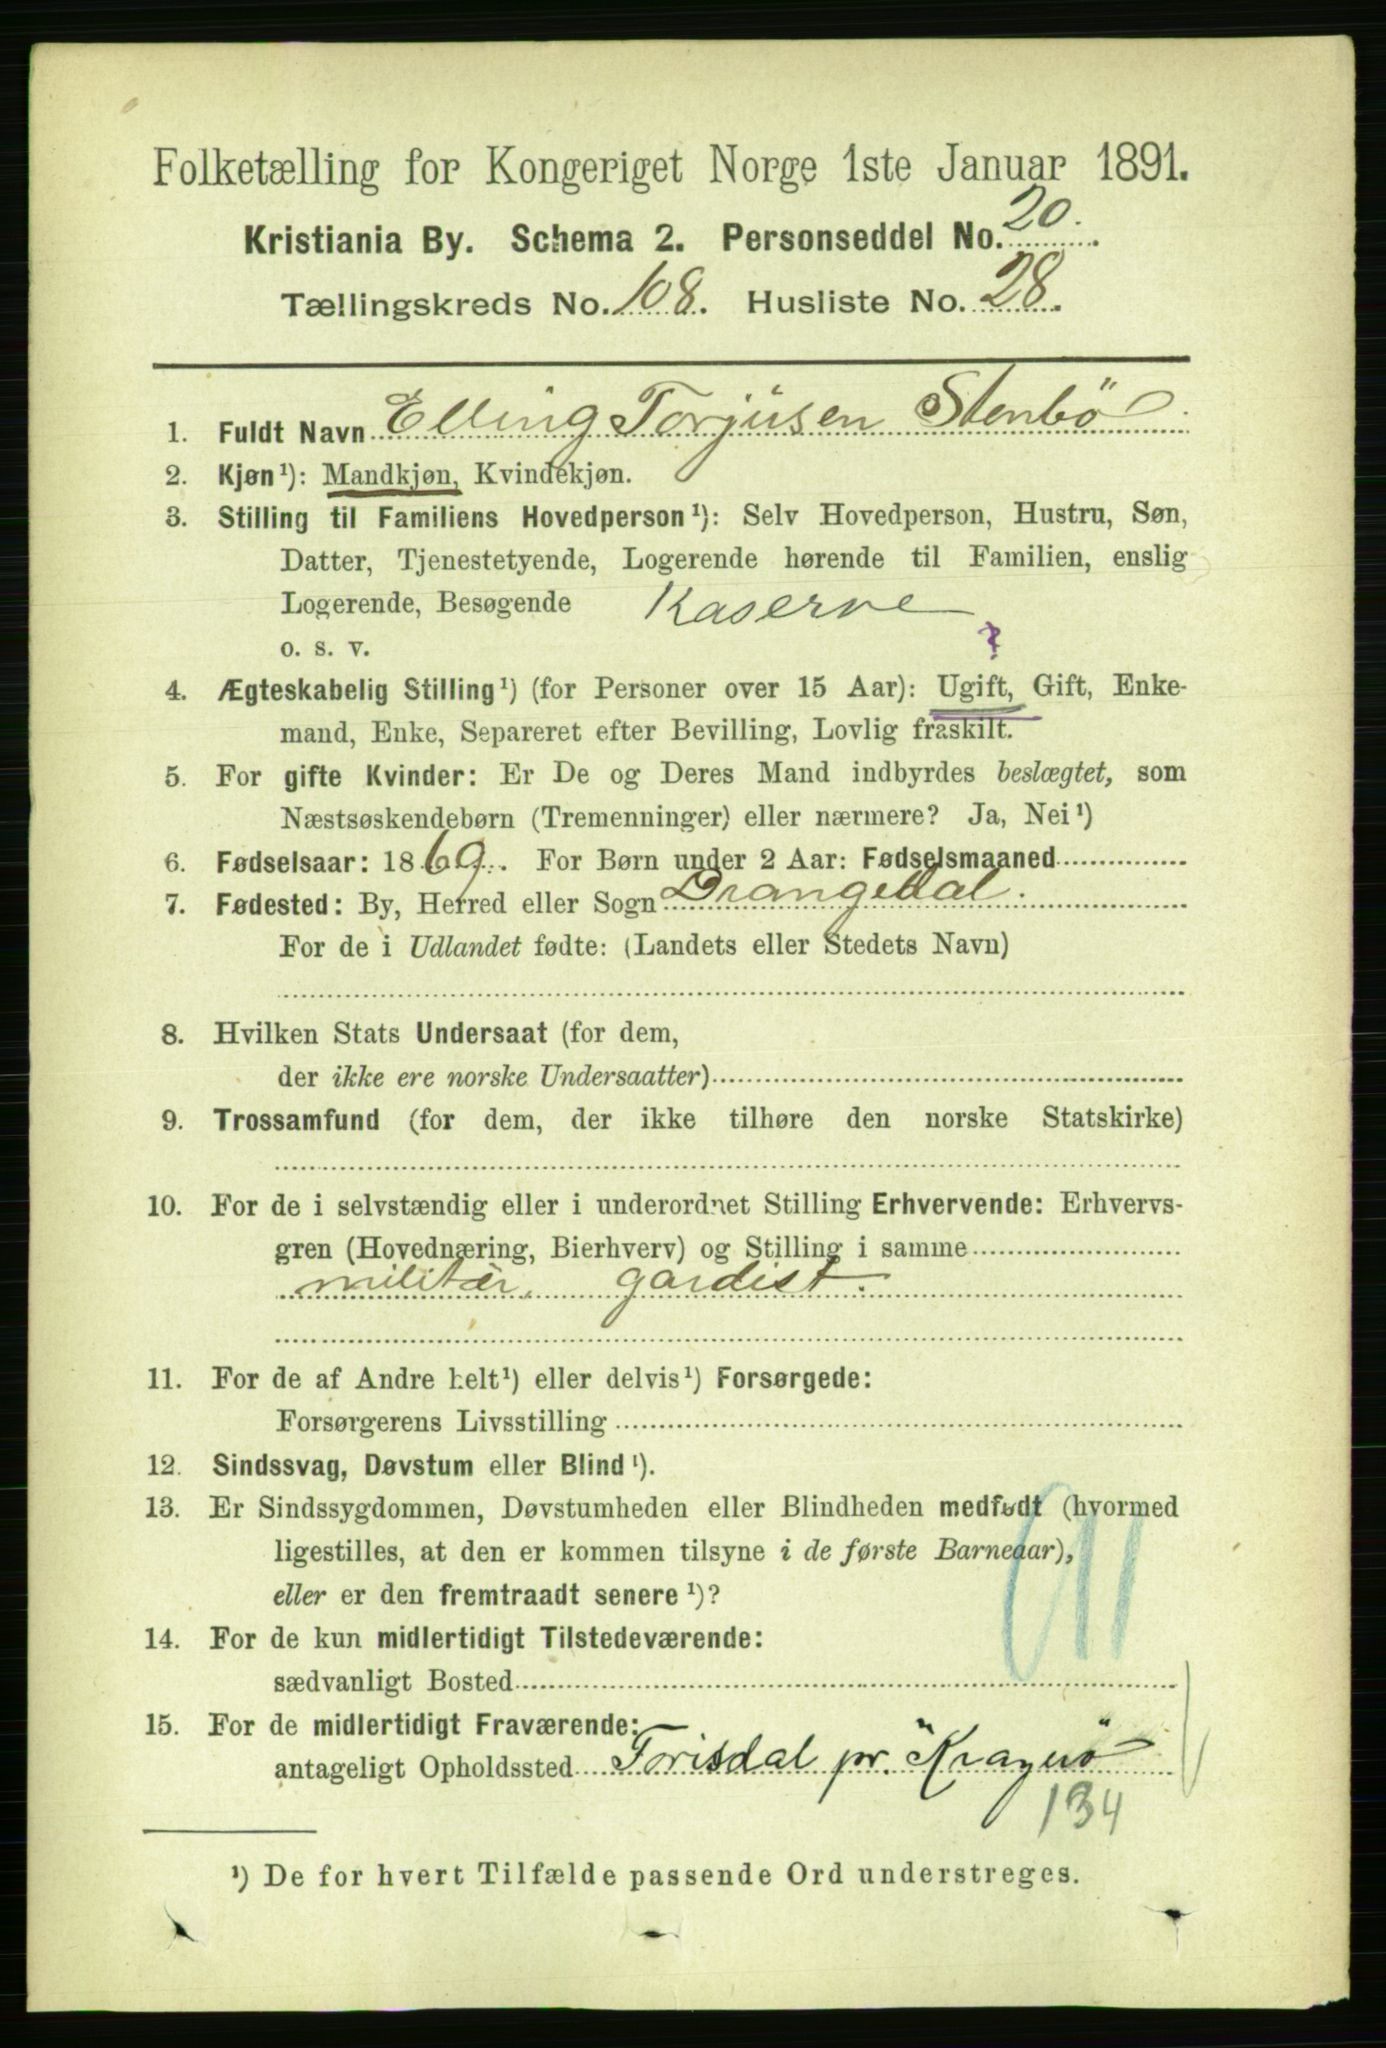 Folketælling for Kongeriget Norge 1ste Januar 1891.
Kristiania By. Schema 2. Personseddel No. 20.
Tællingskreds No. 108. Husliste No. 28.
1. Fuldt Navn Elling Torjusen Stenbö
2. Kjøn¹): Mandkjøn, Kvindekjøn.
3. Stilling til Familiens Hovedperson¹): Selv Hovedperson, Hustru, Søn,
Datter, Tjenestetyende, Logerende hørende til Familien, enslig
Logerende, Besøgende Kaserne
o. s. v. ?
4. Ægteskabelig Stilling¹) (for Personer over 15 Aar): Ugift, Gift, Enke-
mand, Enke, Separeret efter Bevilling, Lovlig fraskilt.
5. For gifte Kvinder: Er De og Deres Mand indbyrdes beslægtet, som
Næstsøskendebørn (Tremenninger) eller nærmere? Ja, Nei¹)
6. Fødselsaar: 1869. For Børn under 2 Aar: Fødselsmaaned
7. Fødested: By, Herred eller Sogn Drangedal.
For de i Udlandet fødte: (Landets eller Stedets Navn)
8. Hvilken Stats Undersaat (for dem,
der ikke ere norske Undersaatter)
9. Trossamfund (for dem, der ikke tilhøre den norske Statskirke)
10. For de i selvstændig eller i underordnet Stilling Erhvervende: Erhvervs-
gren (Hovednæring, Bierhverv) og Stilling i samme
militær, gardist.
11. For de af Andre helt¹) eller delvis¹) Forsørgede:
Forsørgerens Livsstilling
12. Sindssvag, Døvstum eller Blind¹).
13. Er Sindssygdommen, Døvstumheden eller Blindheden medfødt (hvormed
ligestilles, at den er kommen tilsyne i de første Barneaar),
eller er den fremtraadt senere¹)?
14. For de kun midlertidigt Tilstedeværende:
sædvanligt Bosted
15. For de midlertidigt Fraværende:
antageligt Opholdssted Torisdal pr. "Kragerö"
134
¹) De for hvert Tilfælde passende Ord understreges.